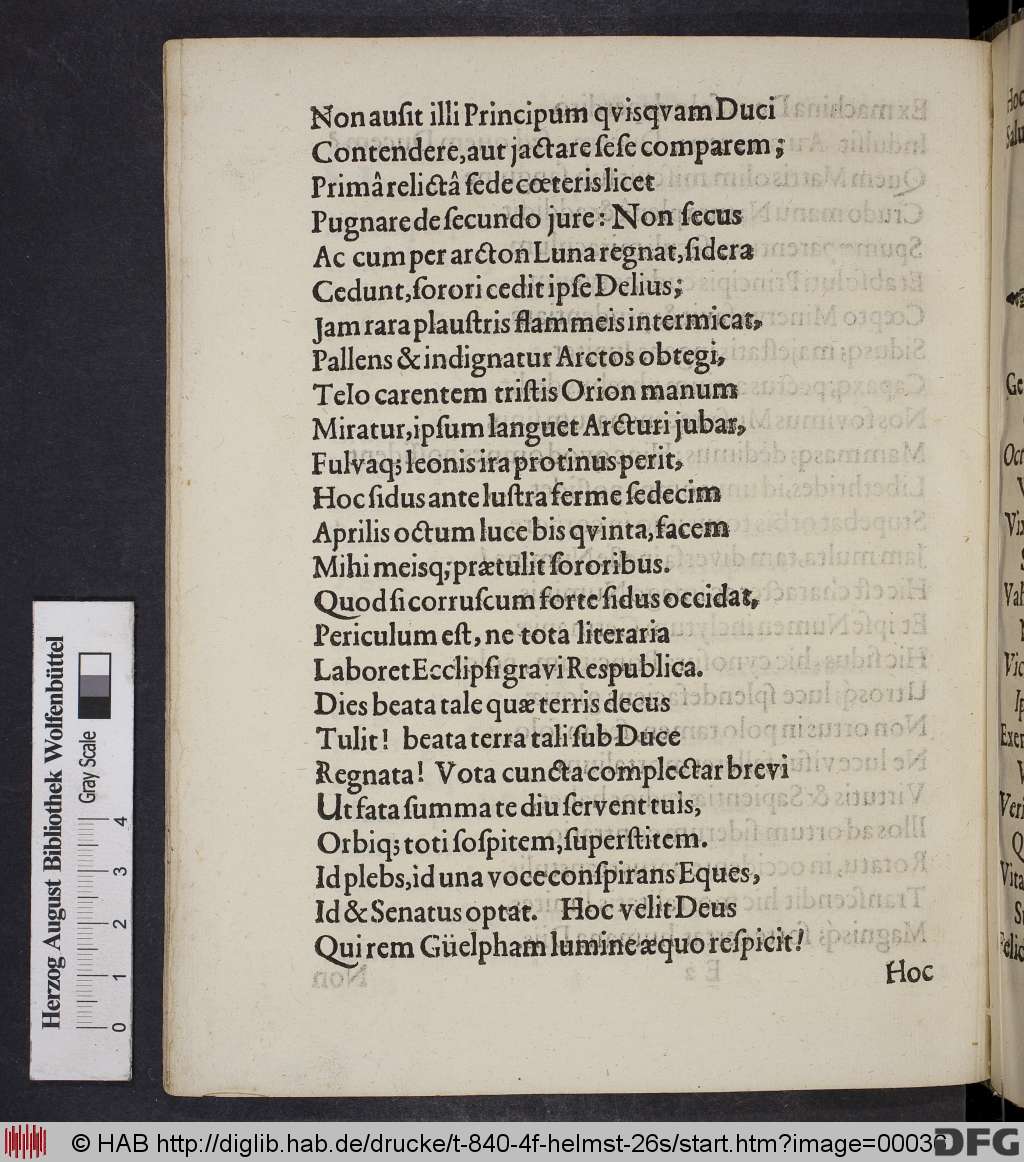 Non auſit illi Principum qviſqvam Duci
Contendere, aut jactare ſeſe comparem;
Primâ relictâ ſede cœteris licet
Pugnare de ſecundo jure: Non ſecus
Ac cum per arcton Luna regnat, ſidera
Cedunt, ſorori cedit ipſe Delius;
Jam rara plauſtris flammeis intermicat,
Pallens & indignatur Arctos obtegi,
Telo carentem triſtis Orion manum
Miratur, ipſum languet Arcturi jubar,
Fulvaq; leonis ira protinus perit,
Hoc ſidus ante luſtra ferme ſedecim
Aprilis octum luce bis qvinta, facem
Mihi meisq; prætulit ſororibus.
Quod ſi corruſcum forte ſidus occidat,
Periculum eſt, ne tota literaria
Laboret Ecclipſi gravi Respublica.
Dies beata tale quæ terris decus
Tulit! beata terra tali ſub Duce
Regnata! Vota cuncta complectar brevi
Ut fata ſumma te diu ſervent tuis,
Orbiq; toti ſoſpitem, ſuperſtitem.
Id plebs, id una voce conſpirans Eques,
Id & Senatus optat. Hoc velit Deus
Qui rem Güelpham lumine æquo reſpicit!
Hoc
Herzog August Bibliothek Wolfenbüttel
Gray Scale
0 1 2 3 4
© HAB http://diglib.hab.de/drucke/t-840-4f-helmst-26s/start.htm?image=00036
DFG